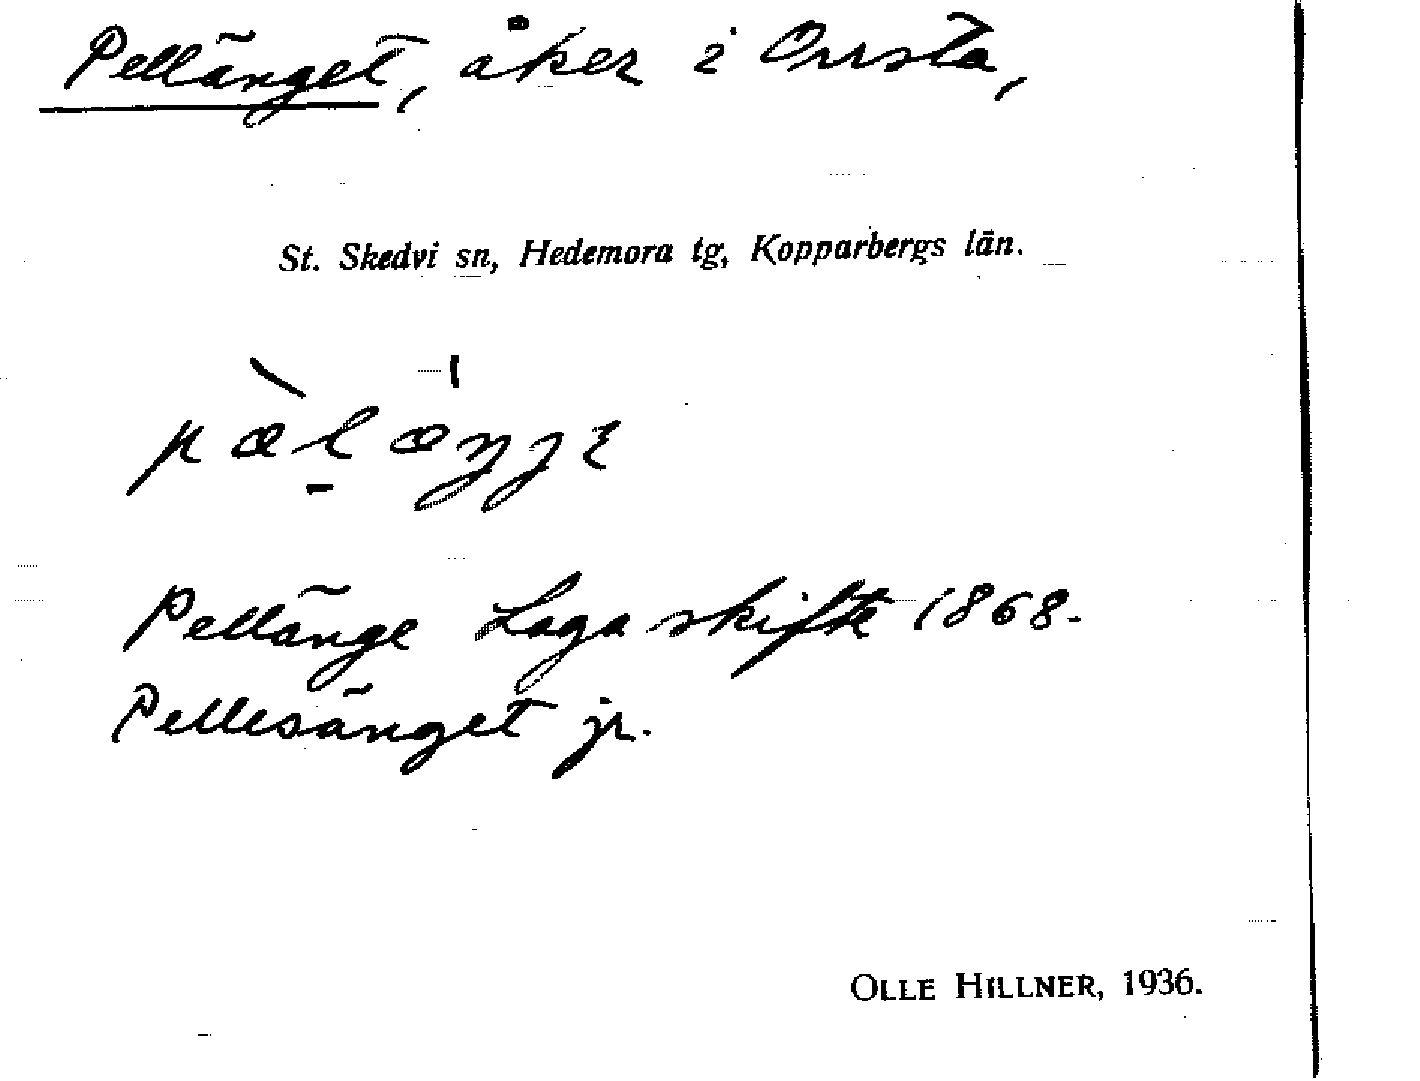 Pellänget, åker i Onsta,
St. Skedvi sn, Hedemora tg, Kopparbergs län.
Pellänge Laga skifte 1868.
Pellesänget jr.
OLLE HILLNER, 1936.